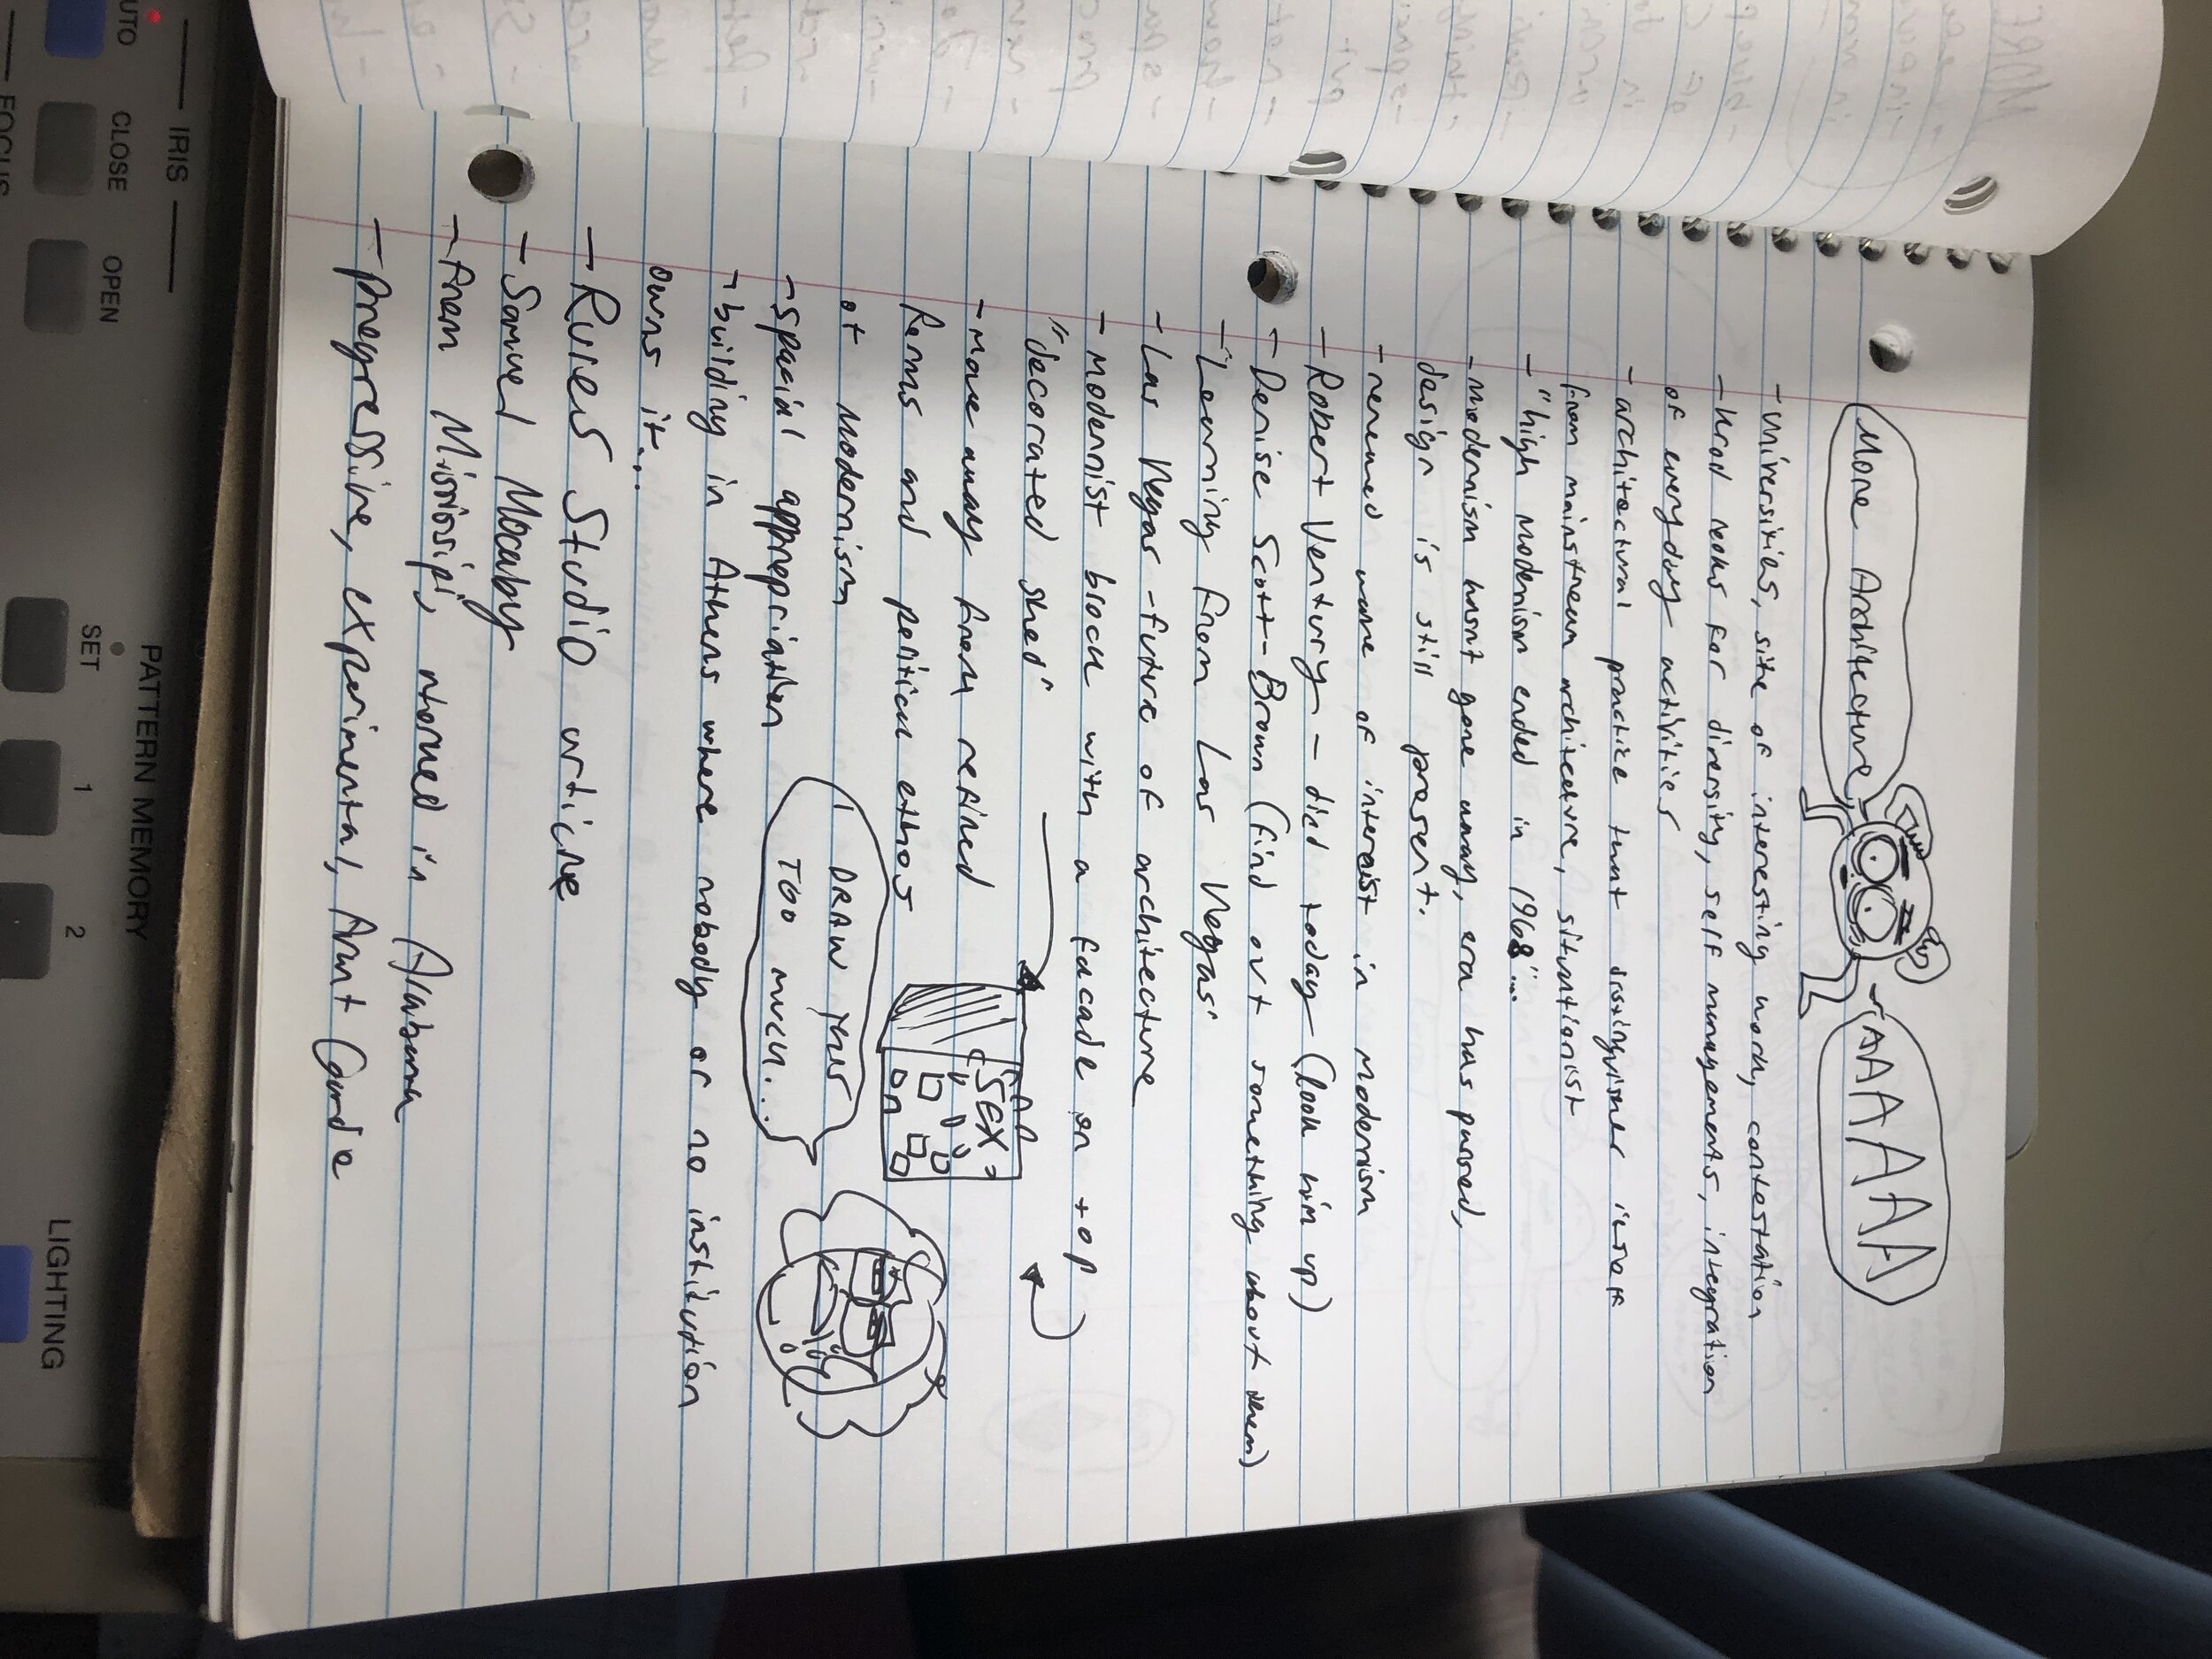 More Architecture
AAAAAA
- Universities, site of interesting work, contestation
- Krad looks for diversity, self managements, integration
of everyday activities
- architectural practice that distinguishes itself
from mainstream architecture, situationist
- "high modernism ended in 1968"...
- modernism hasnt gone away, era has passed,
design is still present.
- renewed wave of interest in modernism
- Robert Ventury - died today (look him up)
- Denise Scott-Brown (find out something about them)
- "Learning from Las Vegas"
- Las Vegas - future of architecture
- modernist block with a facade on top
"decorated shed"
- move away from refined
forms and political ethos
of modernism
- spacial appropriation
SEX
I DRAW THIS
TOO MUCH...
- building in Athens where nobody or no institution
owns it...
- Rules Studio article
- Samuel Mocaby
- from Mississipi, worked in Alabama
- progressive, experimental, Avant Garde
AUTO
CLOSE
OPEN
IRIS
FOCUS
SET
1
2
PATTERN MEMORY
LIGHTING